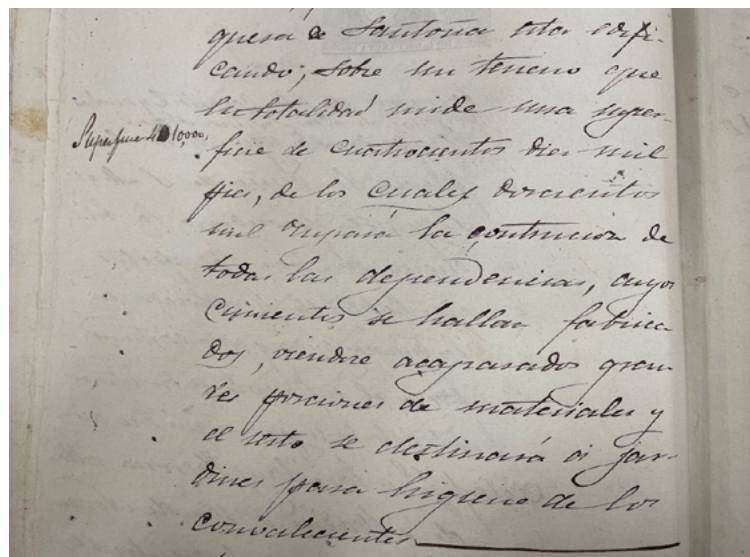 quesa de Santoña esta edifi-
cando, sobre un terreno que
la totalidad mide una super-
Superficie 410,000,
ficie de cuatrocientos diez mil
pies, de los cuales doscientos
mil ocupará la contrucion de
todas las dependencias, cuyos
cimientos se hallan fabrica-
dos, viendose acaparados gran-
des porciones de materiales y
el resto se destinará á jar-
dines para higiene de los
convalecientes